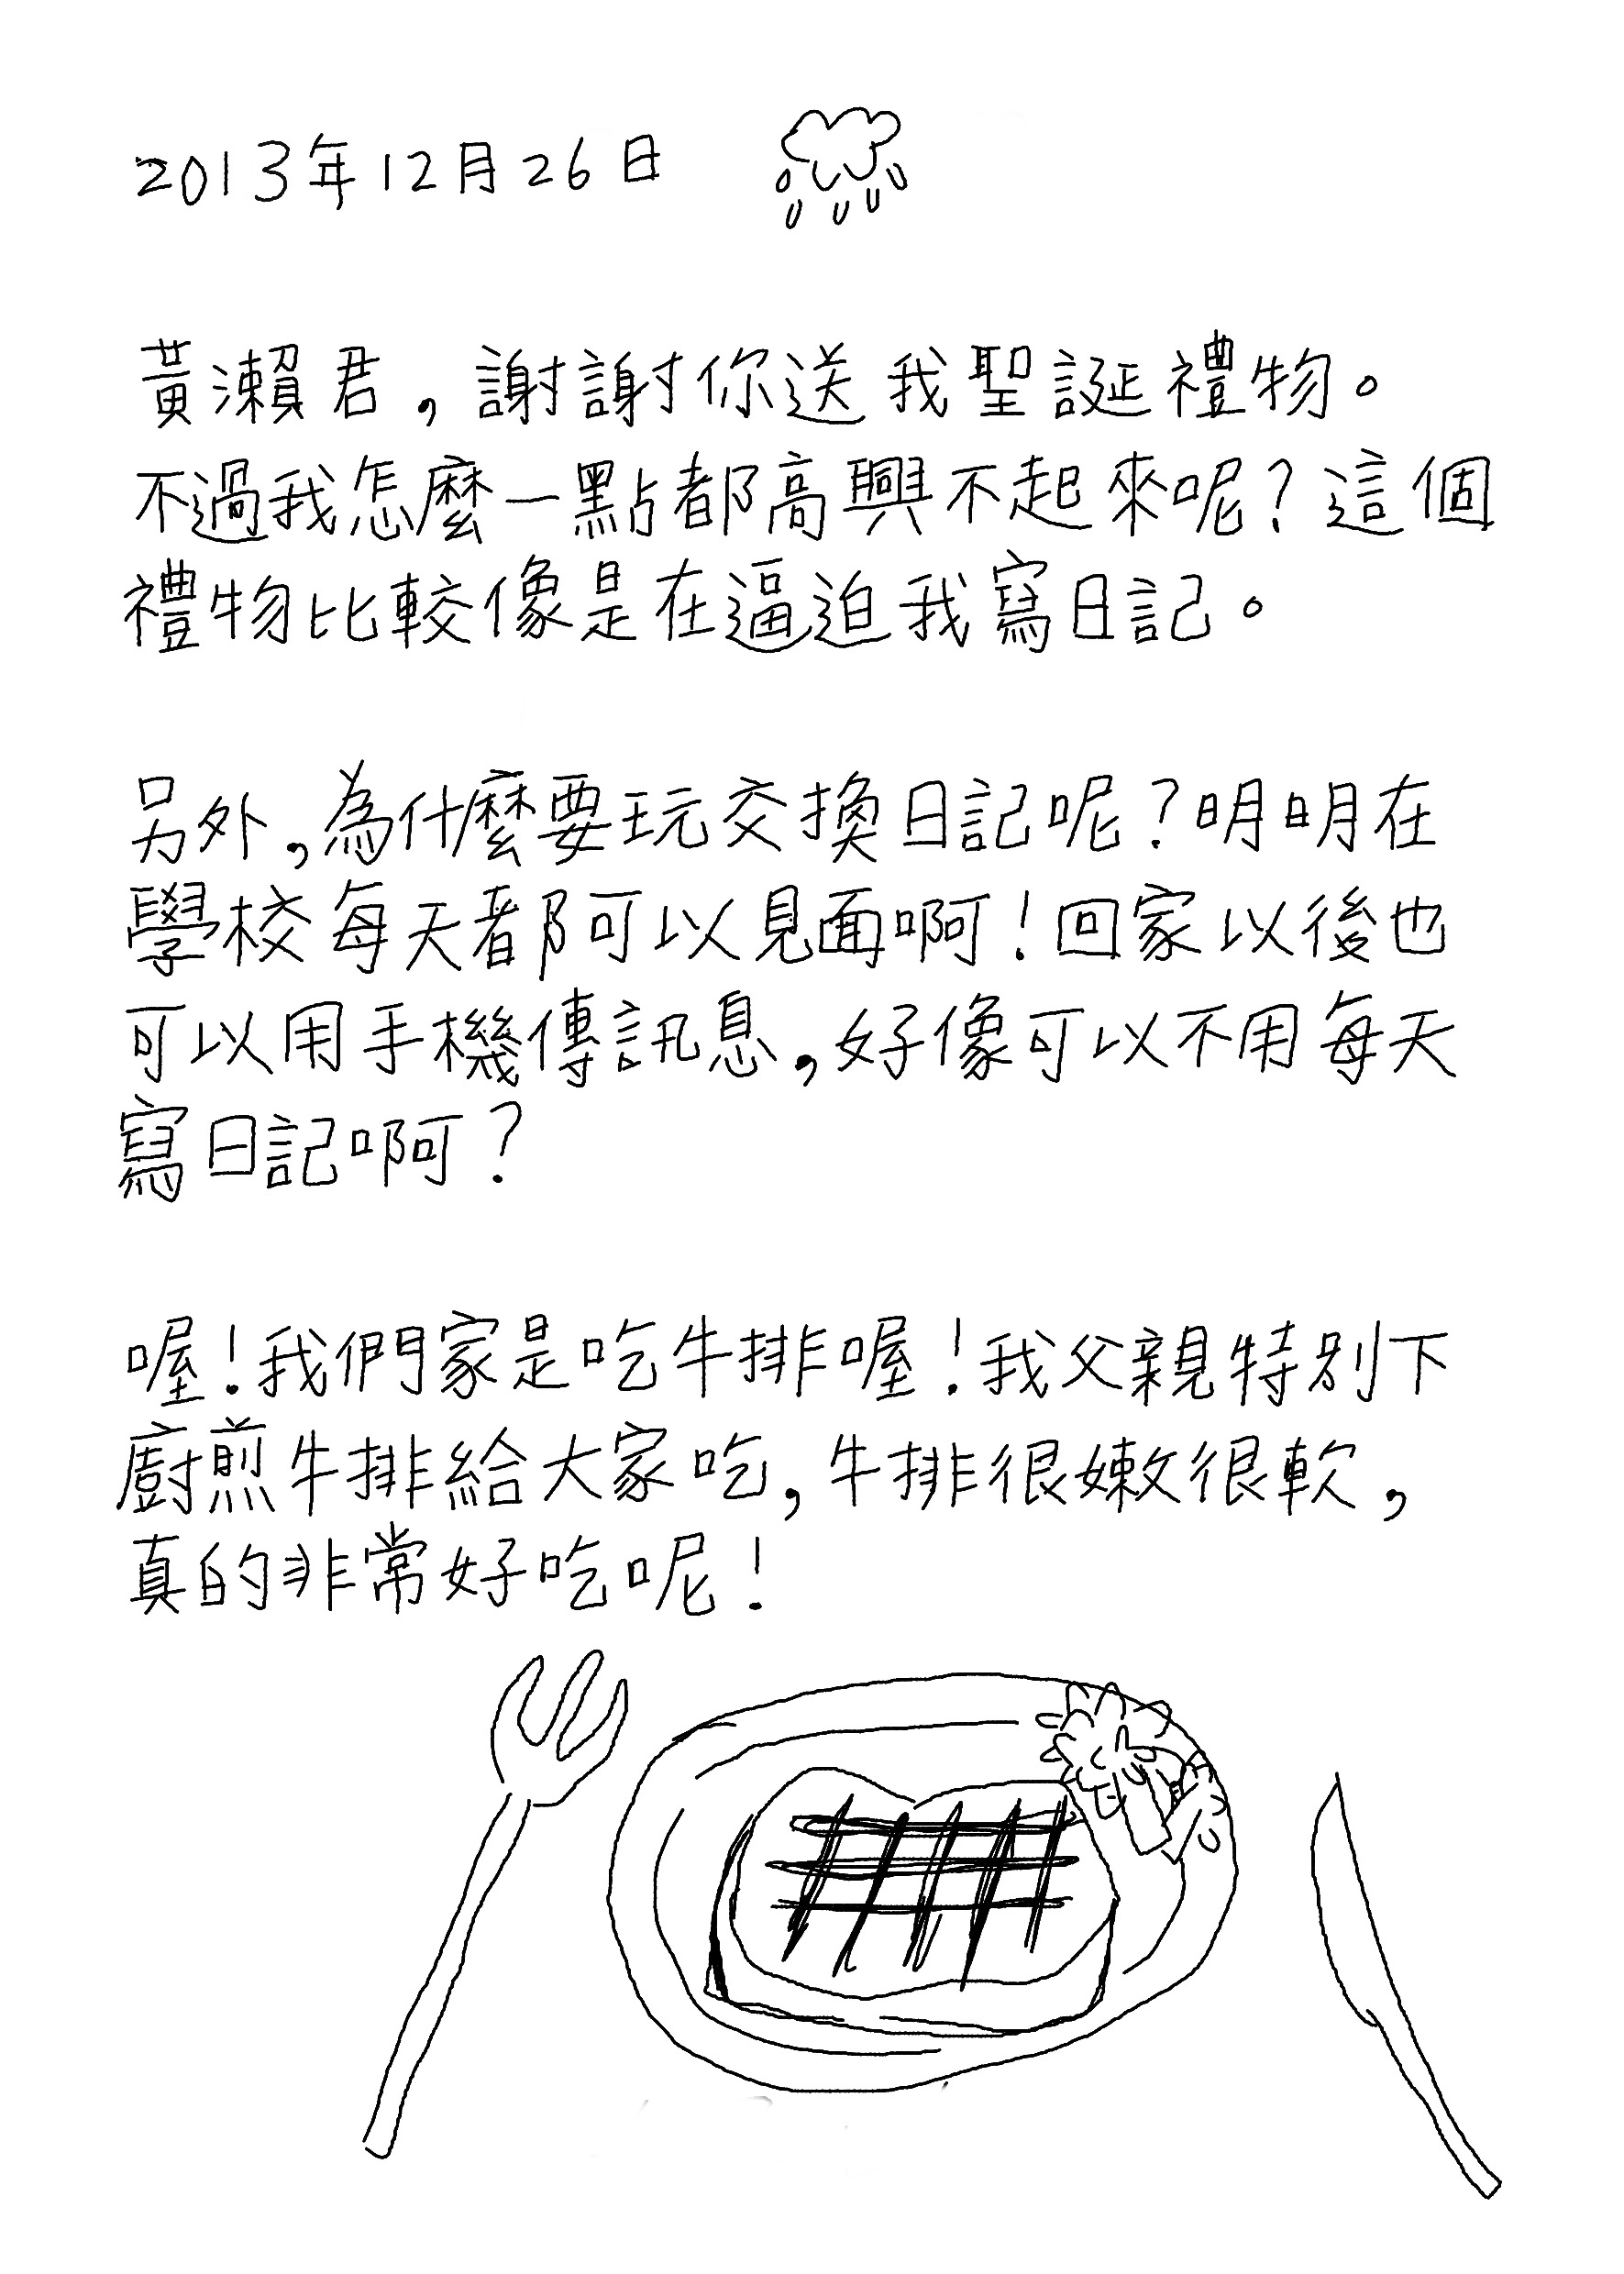 2013年12月26日
黃瀨君，謝謝你送我聖誕禮物。
不過我怎麼一點都高興不起來呢？這個
禮物比較像是在逼迫我寫日記。
另外，為什麼要玩交換日記呢？明明在
學校每天都可以見面啊！回家以後也
可以用手機傳訊息，好像可以不用每天
寫日記啊？
喔！我們家是吃牛排喔！我父親特別下
廚煎牛排給大家吃，牛排很嫩很軟，
真的非常好吃呢！